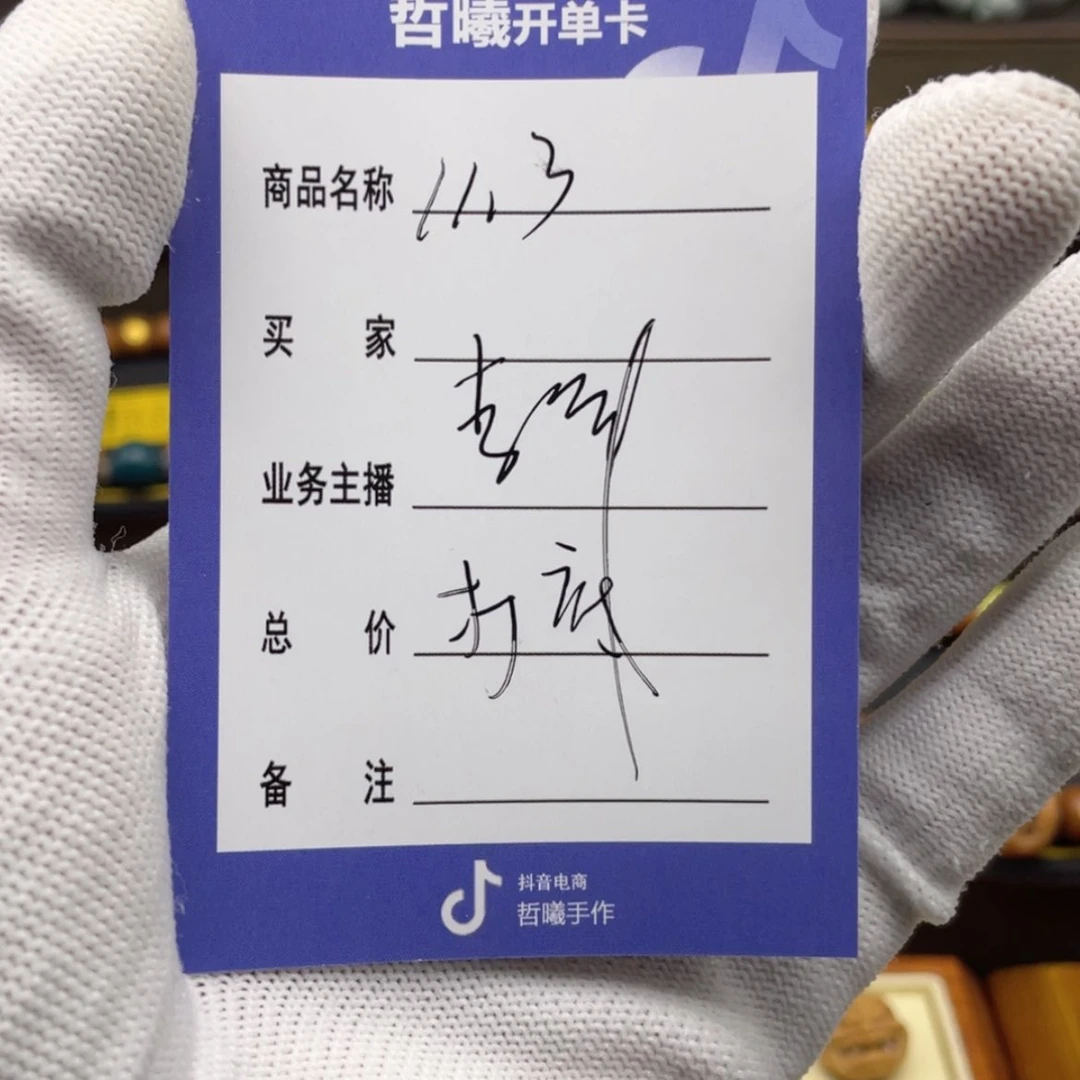 哲曦开单卡
商品名称 11.3
买家
业务主播
总价
备注
抖音电商
哲曦手作